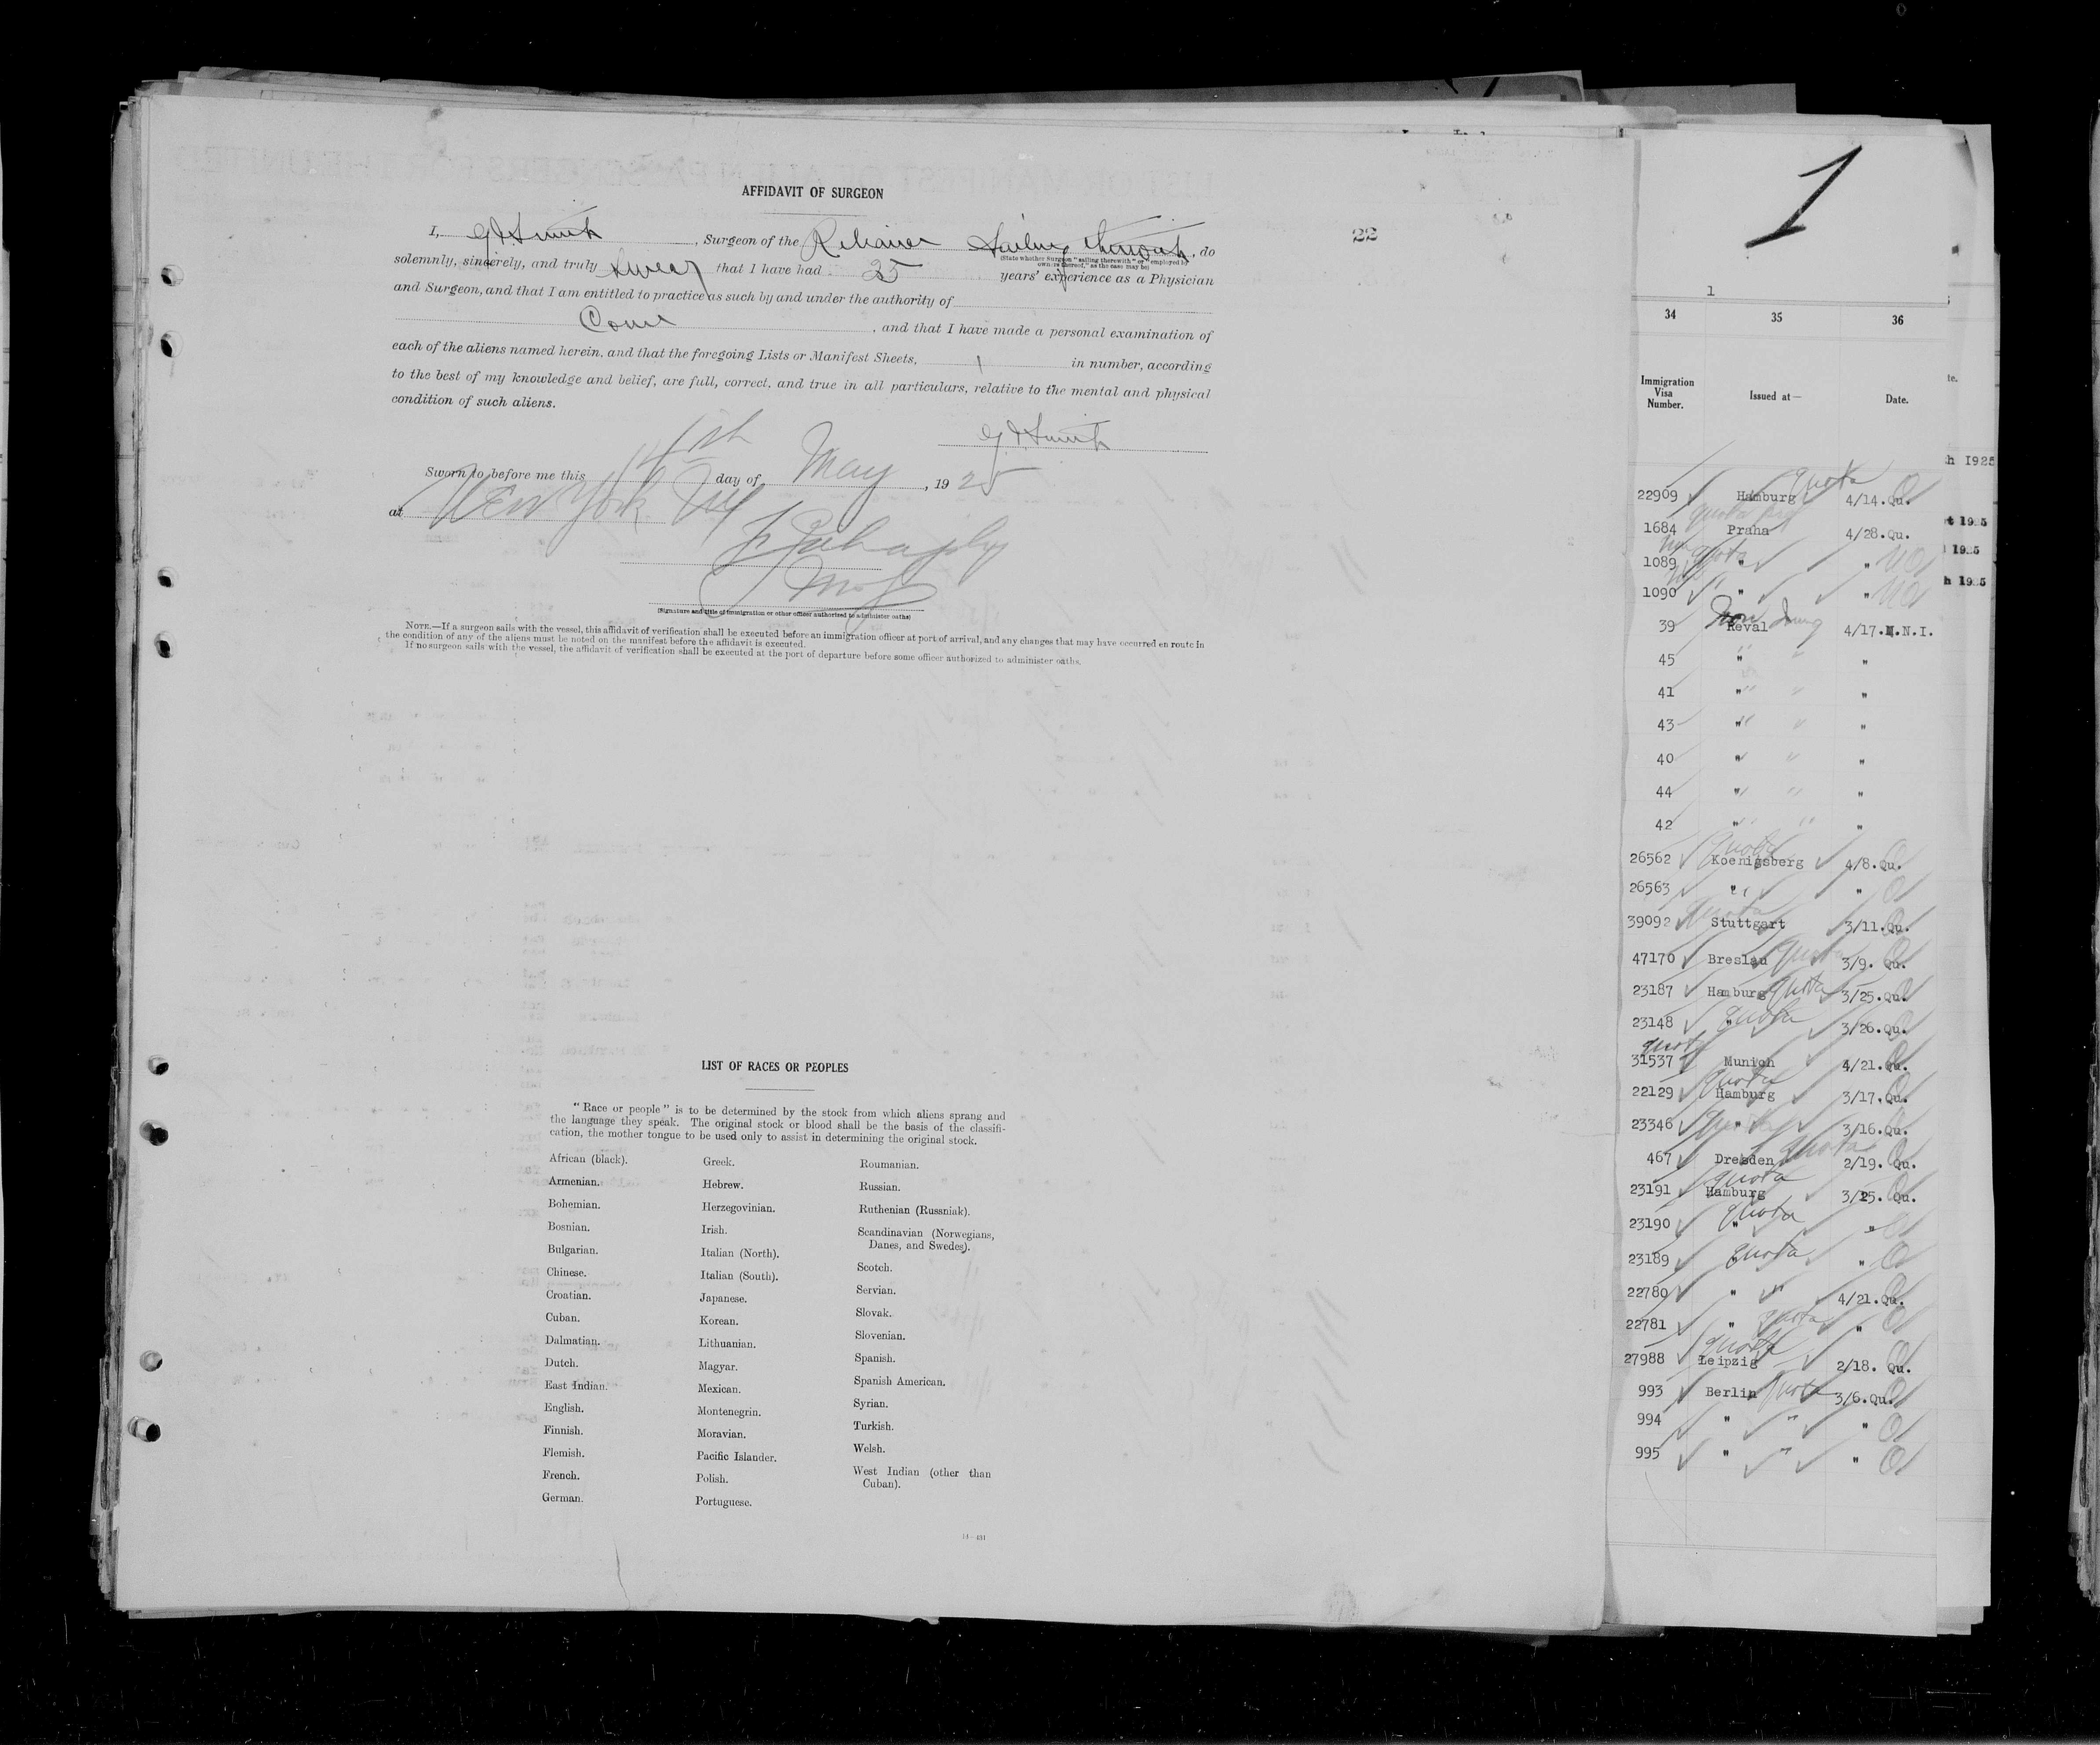 AFFIDAVIT OF SURGEON
I, G. D. Smith, Surgeon of the Reliance Sailing therewith, do
(State whether Surgeon "sailing therewith" or "employed by
owners thereof," as the case may be)
solemnly, sincerely, and truly swear that I have had 35 years' experience as a Physician
and Surgeon, and that I am entitled to practice as such by and under the authority of
Conn, and that I have made a personal examination of
each of the aliens named herein, and that the foregoing Lists or Manifest Sheets, 1 in number, according
to the best of my knowledge and belief, are full, correct, and true in all particulars, relative to the mental and physical
condition of such aliens.
G. D. Smith
Sworn to before me this 14th day of May, 1925
at New York NY
(Signature and title of immigration or other officer authorized to administer oaths)
NOTE.—If a surgeon sails with the vessel, this affidavit of verification shall be executed before an immigration officer at port of arrival, and any changes that may have occurred en route in
the condition of any of the aliens must be noted on the manifest before the affidavit is executed.
If no surgeon sails with the vessel, the affidavit of verification shall be executed at the port of departure before some officer authorized to administer oaths.
22
LIST OF RACES OR PEOPLES
"Race or people" is to be determined by the stock from which aliens sprang and
the language they speak. The original stock or blood shall be the basis of the classifi-
cation, the mother tongue to be used only to assist in determining the original stock.
African (black).
Armenian.
Bohemian.
Bosnian.
Bulgarian.
Chinese.
Croatian.
Cuban.
Dalmatian.
Dutch.
East Indian.
English.
Finnish.
Flemish.
French.
German.
Greek.
Hebrew.
Herzegovinian.
Irish.
Italian (North).
Italian (South).
Japanese.
Korean.
Lithuanian.
Magyar.
Mexican.
Montenegrin.
Moravian.
Pacific Islander.
Polish.
Portuguese.
Roumanian.
Russian.
Ruthenian (Russniak).
Scandinavian (Norwegians,
Danes, and Swedes).
Scotch.
Servian.
Slovak.
Slovenian.
Spanish.
Spanish American.
Syrian.
Turkish.
Welsh.
West Indian (other than
Cuban).
14—491
1
1
34 35 36
Immigration
Visa
Number.
Issued at—
Date.
22909 Hamburg quota 4/14.Qu.
1684 Praha 4/28.Qu.
1089 " "
1090 " "
39 Reval 4/17.N.N.I.
45 " " "
41 " " "
43 " " "
40 " " "
44 " " "
42 " " "
26562 quota Koenigsberg 4/8.Qu.
26563 " "
39092 quota Stuttgart 3/11.Qu.
47170 Breslau quota 3/9. Qu.
23187 Hamburg quota 3/25.Qu.
23148 " quota 3/26.Qu.
quota
31537 Munich 4/21.Qu.
22129 quota Hamburg 3/17.Qu.
23346 quota " 3/16.Qu.
467 Dresden quota 2/19. Qu.
23191 quota Hamburg 3/25. Qu.
23190 quota " "
23189 quota "
22780 " " 4/21.Qu.
22781 " quota "
27988 quota Leipzig 2/18. Qu.
993 Berlin quota 3/6.Qu.
994 " " "
995 " " "
te.
h 1925
t 1925
1925
h 1925